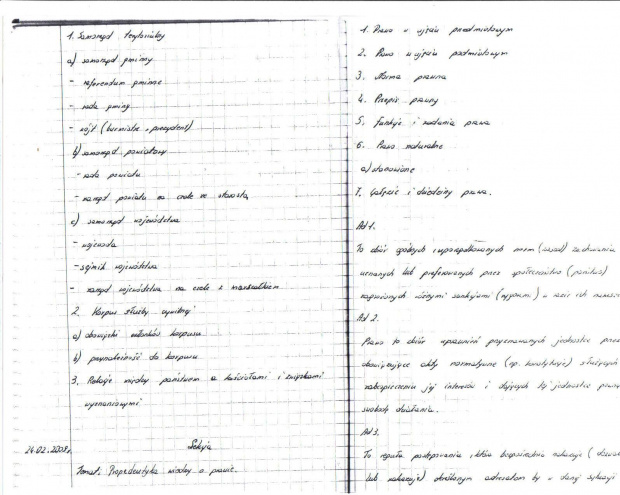 1. Samorząd terytorialny
a) samorząd gminny
- referendum gminne
- rada gminy
- wójt (burmistrz, prezydent)
b) samorząd powiatowy
- rada powiatu
- zarząd powiatu na czele ze starostą
c) samorząd województwa
- wojewoda
- sejmik województwa
- zarząd województwa na czele z marszałkiem
2. Korpus służby cywilnej
a) obowiązki członków korpusu
b) przynależność do korpusu
3. Relacje między państwem a kościołami i związkami
wyznaniowymi
24.02.2008r.
Lekcja
Temat: Propedeutyka wiedzy o prawie.
1. Prawo w ujęciu przedmiotowym
2. Prawo w ujęciu podmiotowym
3. Norma prawna
4. Przepis prawny
5. Funkcje i zadania prawa
6. Prawo naturalne
a) stanowione
7. Gałęzie i dziedziny prawa.
Ad 1.
To zbiór ogólnych i uporządkowanych norm (zasad) zachowania
uznanych lub preferowanych przez społeczeństwo (państwo)
zagrożonych różnymi sankcjami ( ) w razie ich
Ad 2.
Prawo to zbiór uprawnień przyznawanych jednostce przez
obowiązujące akty normatywne (np. konstytucję) służących
zabezpieczeniu jej interesów i dających tej jednostce
swobodę działania.
Ad 3.
To reguła postępowania, która bezpośrednio nakazuje (
lub zakazuje) określonym adresatom by w danej sytuacji